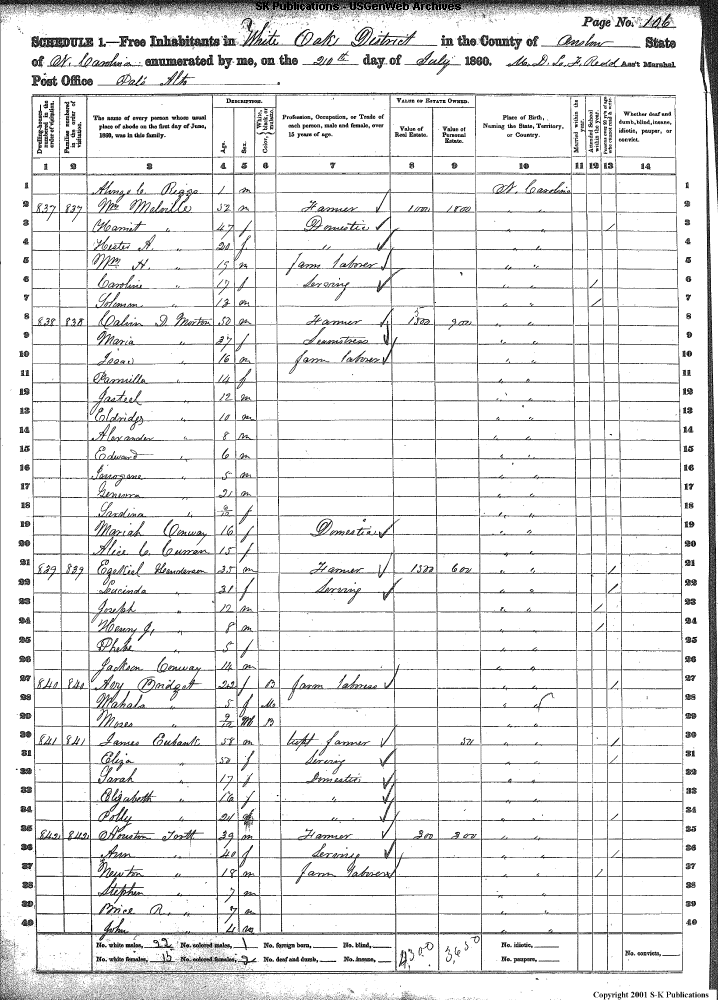 SK Publications - USGenWeb Archives
Page No. 106
SCHEDULE 1.—Free Inhabitants in White Oak District in the County of Onslow State
of N. Carolina enumerated by me, on the 21th day of July 1860. D. L. F. Redd Ass't Marshal
Post Office Palo Alto
Dwelling-houses—numbered in the order of visitation.
Families numbered in the order of visitation.
The name of every person whose usual place of abode on the first day of June, 1860, was in this family.
DESCRIPTION.
Age.
Sex.
Color, White, black, or mulatto.
Profession, Occupation, or Trade of each person, male and female, over 15 years of age.
VALUE OF ESTATE OWNED.
Value of Real Estate.
Value of Personal Estate.
Place of Birth, Naming the State, Territory, or Country.
Married within the year.
Attended School within the year.
Whether deaf and dumb, blind, insane, idiotic, pauper, or convict.
1 2 3 4 5 6 7 8 9 10 11 12 13 14
1 C. Riggs 1 m N. Carolina 1
2 837 837 Wm Melville 52 m Farmer 1000 1800 " " 2
3 Harriet " 47 f Domestic / 3
4 Hester A. " 20 f " " " 4
5 Wm H. " 19 m farm laborer " " 5
6 Caroline " 17 f Serving " " / 6
7 Solomon " 12 m / 7
8 838 838 Calvin D. Morton 50 m Farmer 900 " " 8
9 Maria " 37 f Seamstress " " 9
10 Isaac " 16 m farm laborer " " 10
11 Parmilla " 14 f 11
12 " 12 m 12
13 Eldridge " 10 m " " 13
14 Alexander " 8 m " " 14
15 Edward " 6 m " " 15
16 " 5 m " " 16
17 " 21 m " " 17
18 " f " " 18
19 Mariah Conway 16 f Domestic " " 19
20 Alice C. Curran 15 f " " 20
21 839 839 Ezekiel Henderson 35 m Farmer 1500 600 " " / 21
22 Lucinda " 31 f Serving " " / 22
23 Joseph " 12 m " " / 23
24 Henry J. " 8 m " " / 24
25 Phebe " 5 f " " 25
26 Jackson Conway 14 m " " 26
27 840 840 Avy Bridget 22 f B farm laboress " " / 27
28 Mahala " 5 f Mu " " 28
29 Moses " 9/12 m B " " 29
30 841 841 James Eubank 58 m farmer 50 " " / 30
31 Eliza " 50 f Serving " " / 31
32 Sarah " 17 f Domestic " " 32
33 Elizabeth " 16 f " " " 33
34 Polly " 21 " " " / 34
35 842 842 Houston 39 m Farmer 300 300 " " 35
36 Ann " 40 f Serving " " / 36
37 Newton " 18 m farm laborer " " / 37
38 Stephen " 7 m " " 38
39 Price R. " 7 m " " 39
40 John " 4 m " " 40
No. white males, 22 No. colored males, 1 No. foreign born, No. blind, 4300 3650 No. idiotic, No. convicts,
No. white females, 15 No. colored females, 2 No. deaf and dumb, No. insane, No. paupers,
Copyright 2001 S-K Publications